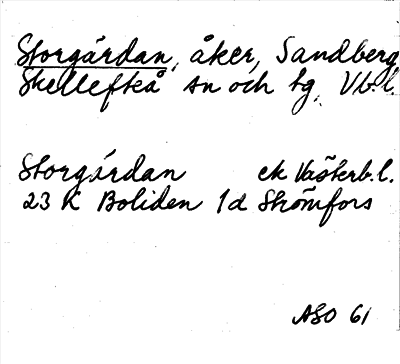 Storgärdan, åker, Sandberg,
Skellefteå sn och tg, Vb.l.
Storgärdan ek Västerb.l.
23 K Boliden 1d Strömfors
ASO 61